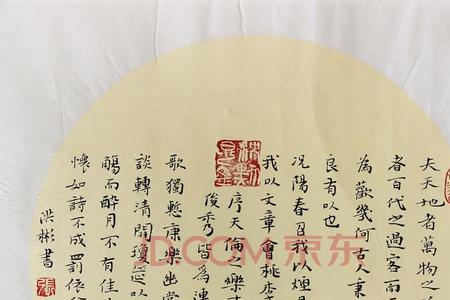 夫天地者萬物之
者百代之過客而
為歡幾何古人秉
良有以也
況陽春召我以煙
我以文章會桃李
序天倫之樂事
俊秀皆為連
歌獨慙康樂幽賞
談轉清開瓊筵以
觴而醉月不有佳
懷如詩不成罰依
洪彬書
JD.COM 京东